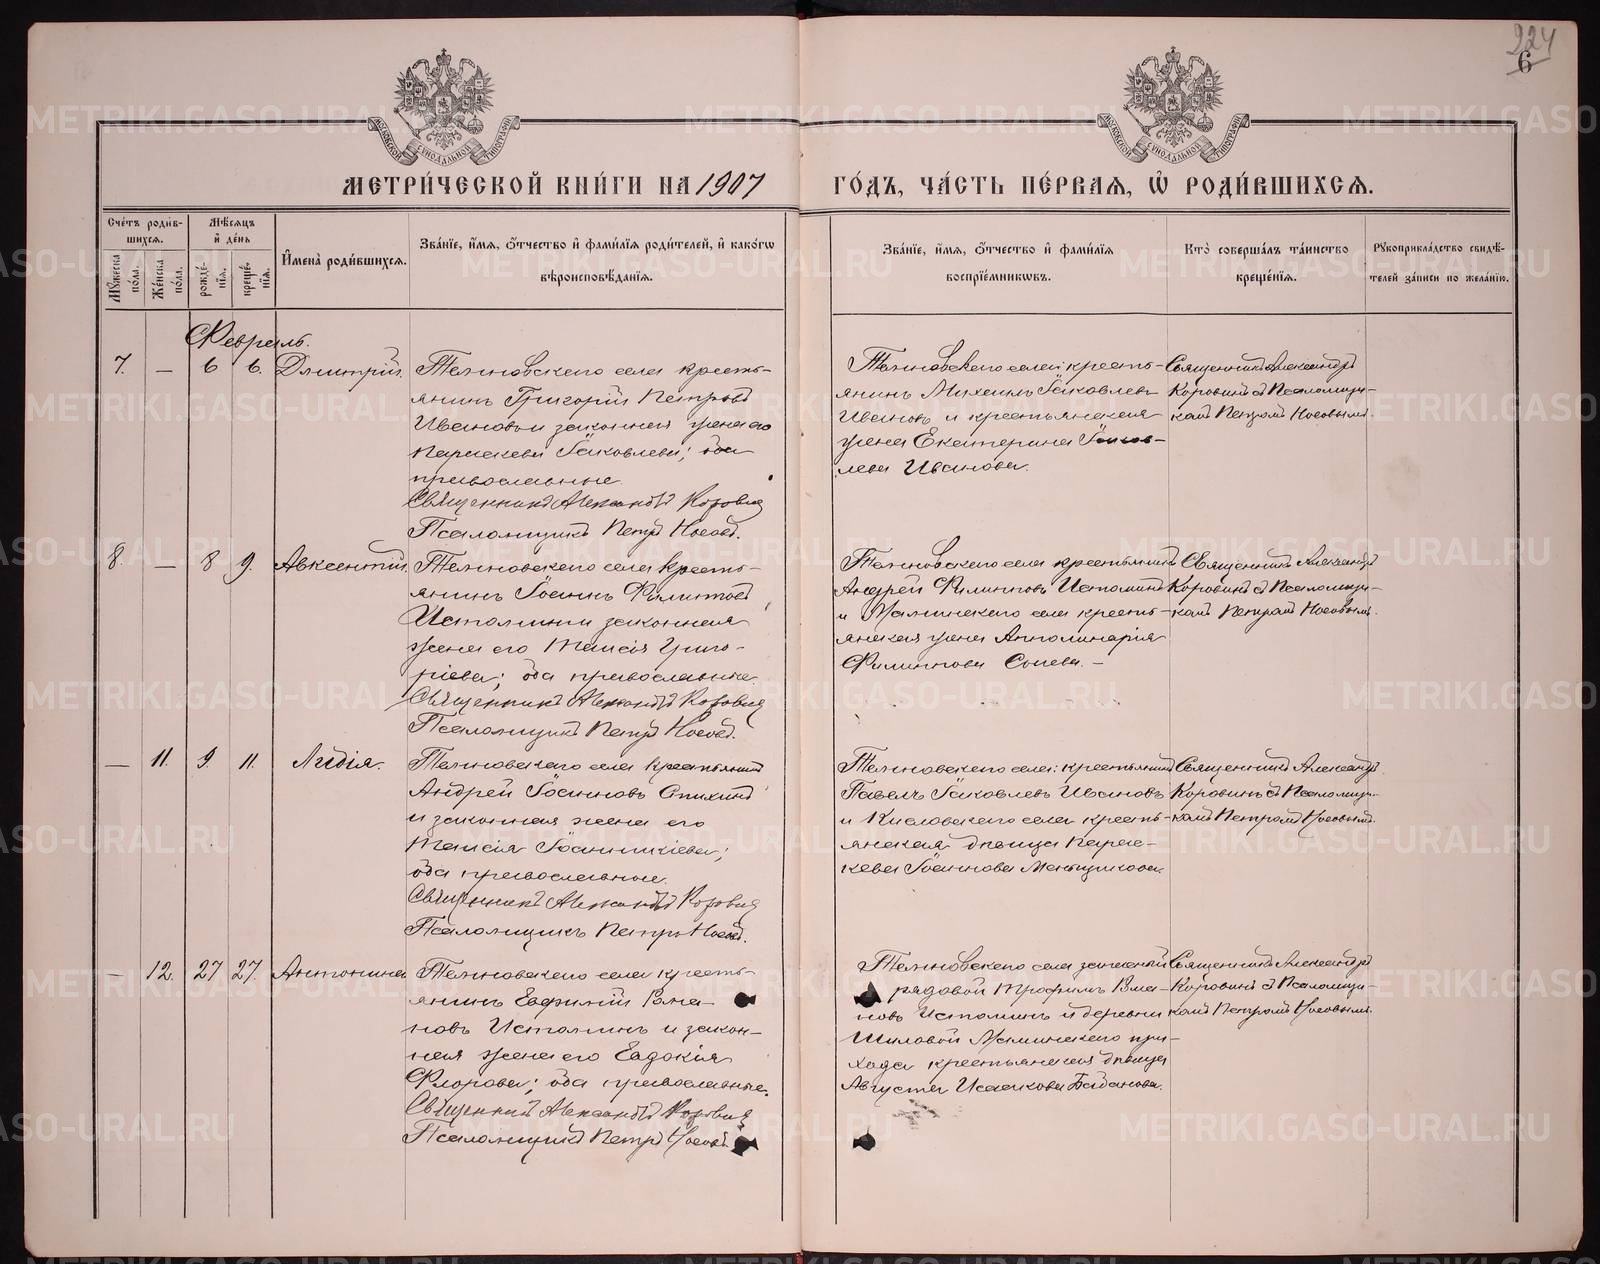 224
6
МЕТРИ́ЧЕСКОЙ КНИ́ГИ НА 1907
ГО́ДЪ, ЧА́СТЬ ПЕ́РВАЯ, Ѽ РОДИ́ВШИХСЯ.
Сче́тъ роди́в-
шихся.
Мѣ́сяцъ
и҆ де́нь
Мꙋ́жеска по́ла.
Же́нска по́ла.
рожде́-
нїя.
креще́-
нїя.
И҆мена̀ роди́вшихся.
Зва́нїе, и҆́мя, ѻ҆́тчество и҆ фами́лїя роди́телей, и҆ како́гѡ
вѣроисповѣ́данїя.
Зва́нїе, и҆́мя, ѻ҆́тчество и҆ фами́лїя
воспрїе́мниковъ.
Кто̀ соверша́лъ та́инство
креще́нїя.
Рꙋкоприкла́дство свидѣ́-
телей за́писи по жела́нїю.
Февраль.
7.
—
6
6.
Димитрій.
села кресть-
янинъ Григорій Петровъ
Ивановъ и законная жена его
Параскева Іаковлева; оба
православные.
Священникъ Александръ Коровинъ
Псаломщикъ Петръ Носовъ.
села крестья-
янинъ Михаилъ Іаковлевъ
Ивановъ и крестьянская
жена Екатерина Іаков-
лева Иванова.
Священникъ Александръ
Коровинъ съ Псаломщи-
комъ Петромъ Носовымъ.
8.
—
8
9.
Авксентій.
села кресть-
янинъ Іоаннъ Филиповъ
Истоминъ и законная
жена его Таисія Григо-
ріева; оба православные.
Священникъ Александръ Коровинъ
Псаломщикъ Петръ Носовъ.
села крестьянинъ
Андрей Филипповъ Истоминъ
и села кресть-
янская жена Апполинарія
Филиппова
Священникъ Александръ
Коровинъ съ Псаломщи-
комъ Петромъ Носовымъ.
—
11.
9.
11.
Лидія.
села крестьянинъ
Андрей Іоанновъ
и законная жена его
Таисія Іоанникіева;
оба православные.
Священникъ Александръ Коровинъ
Псаломщикъ Петръ Носовъ.
села: крестьянинъ
Павелъ Іаковлевъ Ивановъ
и Кисловскаго села кресть-
янская дѣвица Парас-
кева Іоаннова Меньщикова.
Священникъ Александръ
Коровинъ съ Псаломщи-
комъ Петромъ Носовымъ.
—
12.
27
27.
Антонина
села кресть-
янинъ Евфимій Рома-
новъ Истоминъ и закон-
ная жена его Евдокія
Флорова; оба православные.
Священникъ Александръ Коровинъ
Псаломщикъ Петръ Носовъ
села запасный
рядовой Трофимъ Рома-
новъ Истоминъ и деревни
Шиловой при-
хода крестьянская дѣвица
Августа Исаакова
Священникъ Александръ
Коровинъ съ Псаломщи-
комъ Петромъ Носовымъ.
METRIKI.GASO-URAL.RU